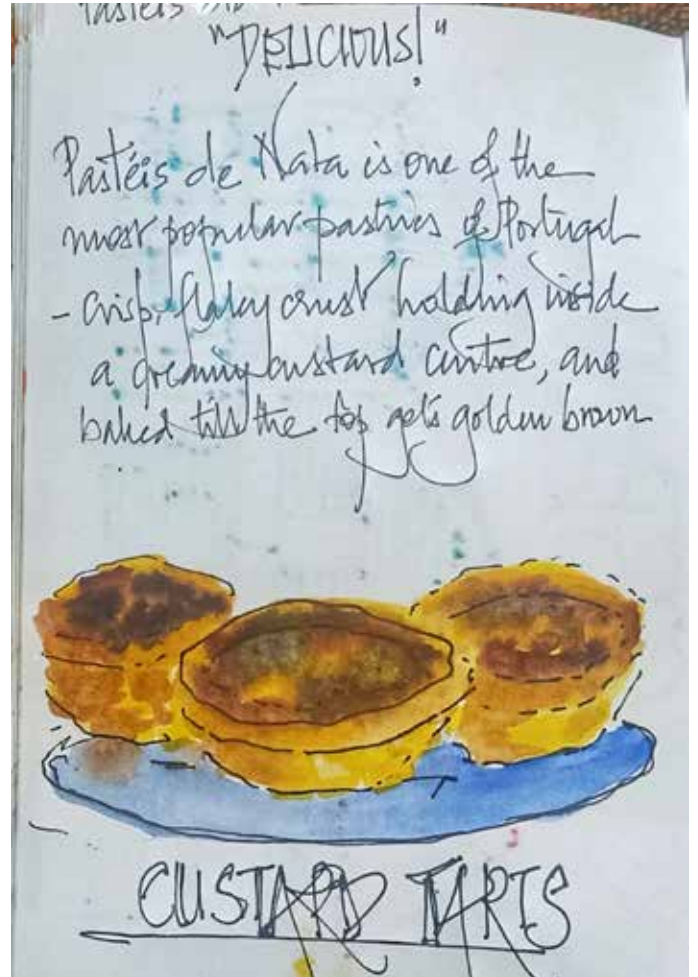 "DELICIOUS!"
Pastéis de Nata is one of the
most popular pastries of Portugal
- crisp, flaky crust holding inside
a creamy custard centre, and
baked till the top gets golden brown
CUSTARD TARTS